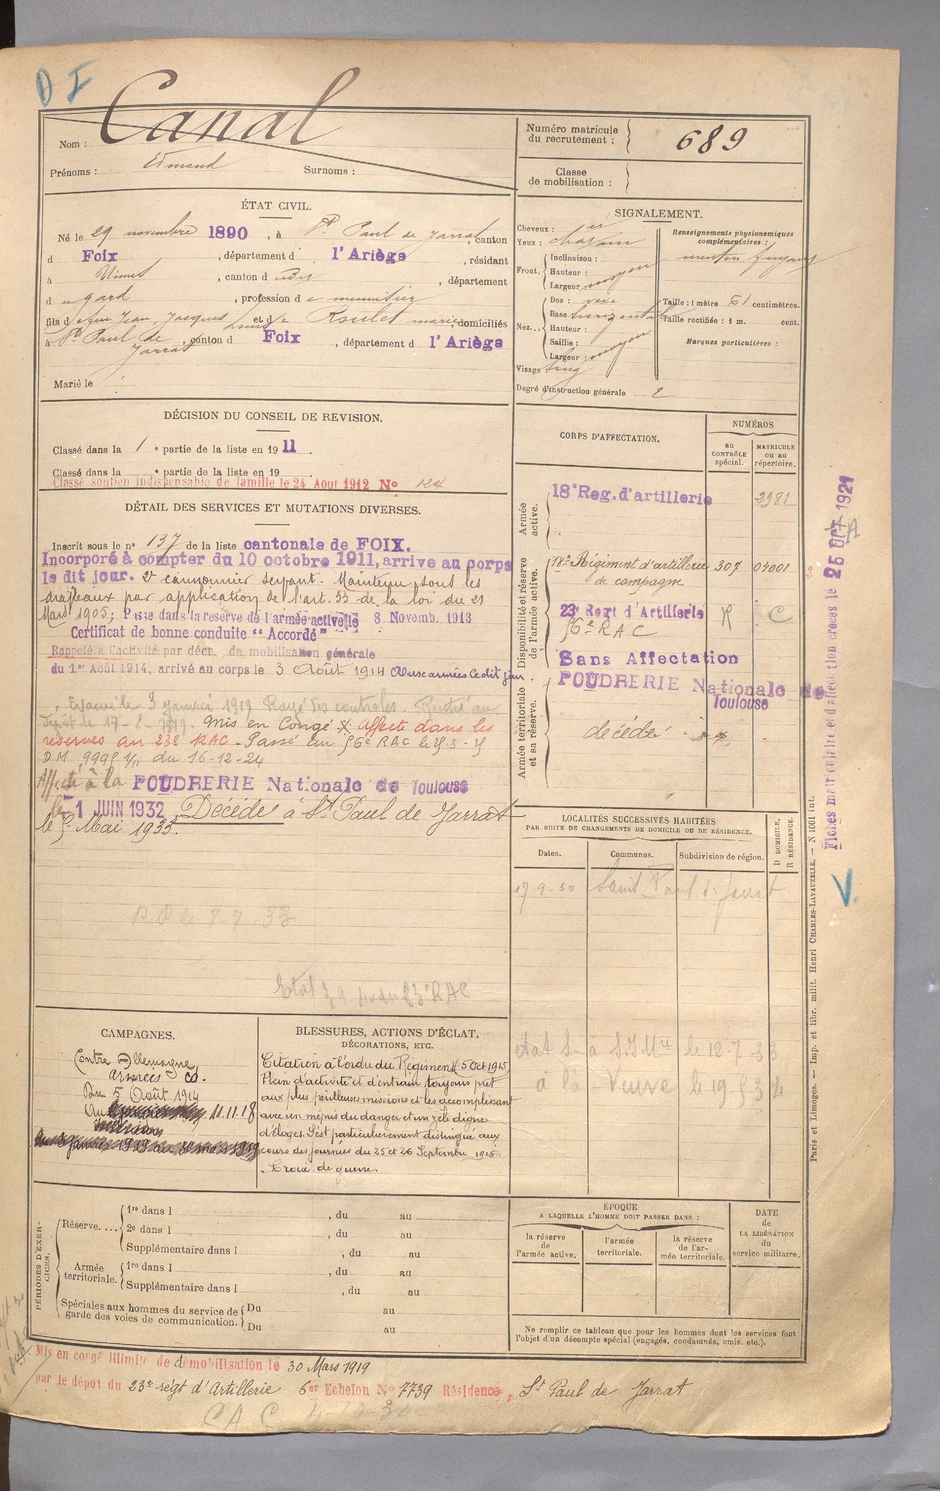 D I
Nom : Canal
Prénoms : Edmond Surnoms :
Numéro matricule du recrutement : 689
Classe de mobilisation :
ÉTAT CIVIL.
Né le 29 novembre 1890, à St Paul de Jarrat, canton
d Foix, département d l'Ariège, résidant
à Nimes, canton d, département
d u gard, profession d e
fils d e feu Jean, Jacques Louis et d e Roulet marie, domiciliés
à St Paul de Jarrat, canton d Foix, département d l'Ariège
Marié le
SIGNALEMENT.
Cheveux :
Yeux : chatain
Front. Inclinaison :
Hauteur :
Largeur : moyen
Nez. Dos :
Base : horizontale
Hauteur :
Saillie :
Largeur : moyen
Visage : long
Renseignements physionomiques complémentaires :
menton fuyant
Taille : 1 mètre 61 centimètres.
Taille rectifiée : 1 m. cent.
Marques particulières :
Degré d'instruction générale 2
DÉCISION DU CONSEIL DE REVISION.
Classé dans la 1e partie de la liste en 1911.
Classé dans la e partie de la liste en 19
Classé soutien indispensable de famille le 24 Aout 1912 No 124
DÉTAIL DES SERVICES ET MUTATIONS DIVERSES.
Inscrit sous le no 137 de la liste cantonale de FOIX.
Incorporé à compter du 10 octobre 1911, arrive au corps
le dit jour. 2e canonnier servant. Maintenu sous les
drapeaux par application de l'art. 33 de la loi du 21
Mars 1905; Passé dans la réserve de l'armée active le 8 Novemb. 1913
Certificat de bonne conduite "Accordé"
Rappelé à l'activité par décr. de mobilisation générale
du 1er Août 1914, arrivé au corps le 3 Août 1914 Aux armées le dit jour.
Evacué le 3 janvier 1919 Rayé des controles. Rentré au
dépôt le 17-2-1919. Mis en Congé affecté dans les
réserves au 23e RAC. Passé au 56e RAC le
D.M. du 16-12-24
Affecté à la POUDRERIE Nationale de Toulouse
le -1 JUIN 1932 Décédé à St Paul de Jarrat
le Mai 1933.
Etat du 23e RAC
CORPS D'AFFECTATION.
NUMÉROS
AU CONTRÔLE SPÉCIAL.
MATRICULE OU AU RÉPERTOIRE.
Armée active.
18e Reg. d'artillerie 2981
Disponibilité et réserve de l'armée active.
18e Régiment d'artillerie de campagne 307 04001
23e Regt d'Artillerie R C
56e RAC
Sans Affectation
POUDRERIE Nationale de Toulouse
Armée territoriale et sa réserve.
décédé
LOCALITÉS SUCCESSIVES HABITÉES
PAR SUITE DE CHANGEMENTS DE DOMICILE OU DE RÉSIDENCE.
Dates. Communes. Subdivision de région. D DOMICILE, R RÉSIDENCE.
17-9-30 Saint Paul de Jarrat
à la Veuve le
CAMPAGNES.
Contre Allemagne
armées
Du 5 Août 1914
Au 11.11.18
BLESSURES, ACTIONS D'ÉCLAT,
DÉCORATIONS, ETC.
Citation à l'ordre du Régiment 5 Oct 1915
Plein d'activité et d'entrain toujours prêt
aux plus périlleuses missions et les accomplissant
avec un mépris du danger et un zèle digne
d'éloges. S'est particulièrement distingué aux
cours des journées du 25 et 26 Septembre 1915.
Croix de guerre
PÉRIODES D'EXERCICES.
Réserve.... 1re dans l , du au
2e dans l , du au
Supplémentaire dans l , du au
Armée territoriale. 1re dans l , du au
Supplémentaire dans l , du au
Spéciales aux hommes du service de garde des voies de communication. Du au
Du au
ÉPOQUE
A LAQUELLE L'HOMME DOIT PASSER DANS :
la réserve de l'armée active.
l'armée territoriale.
la réserve de l'armée territoriale.
DATE de LA LIBÉRATION du service militaire.
Ne remplir ce tableau que pour les hommes dont les services font
l'objet d'un décompte spécial (engagés, condamnés, omis, etc.).
Mis en congé illimité de démobilisation le 30 Mars 1919
par le dépot du 23e régt d'Artillerie 6e Echelon No 7739 Résidence, St Paul de Jarrat
Paris et Limoges. — Imp. et libr. milit. Henri CHARLES-LAVAUZELLE. — N 1001 int.
Fiches matriculaire et d'affectation créées le 26 Oct 1921
V.